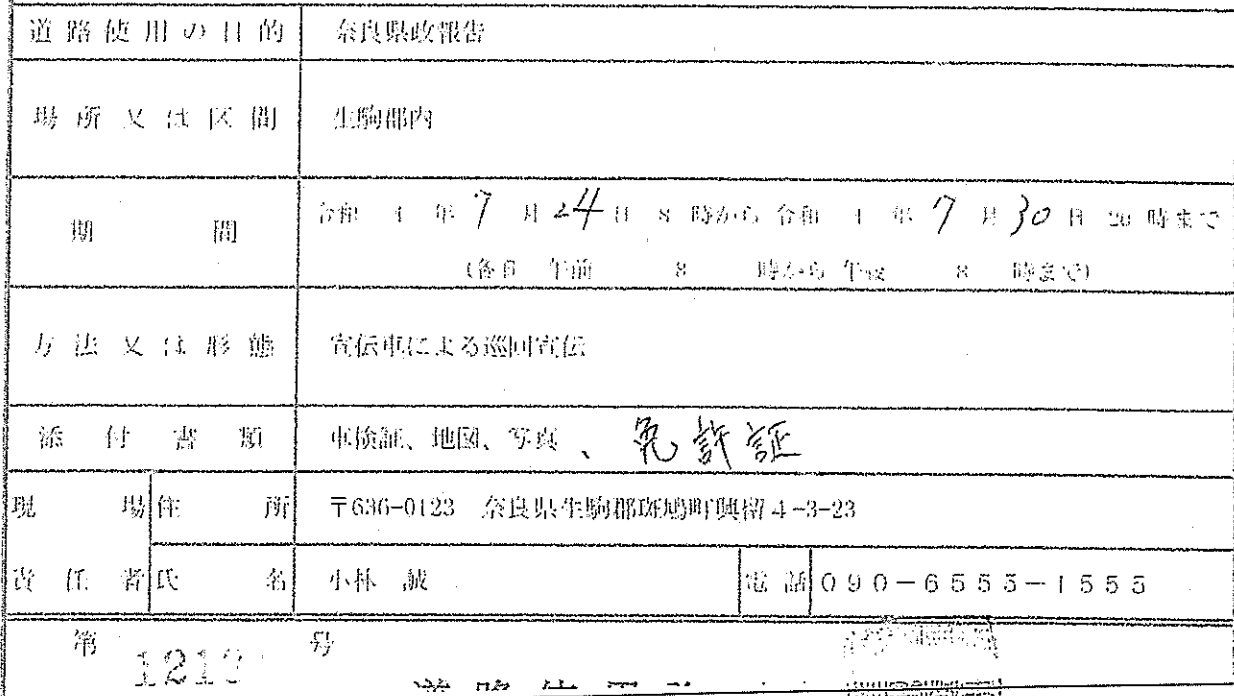 道路使用の目的 奈良県政報告
場所又は区間 生駒郡内
期間 令和 4 年 7 月 24 日 8 時から 令和 4 年 7 月 30 日 20 時まで
(各日 午前 8 時から 午後 8 時まで)
方法又は形態 宣伝車による巡回宣伝
添付書類 車検証、地図、写真、免許証
現場 住所 〒636-0123 奈良県生駒郡斑鳩町興留4-3-23
責任者 氏名 小林 誠 電話 090-6555-1555
第 号
道路使用